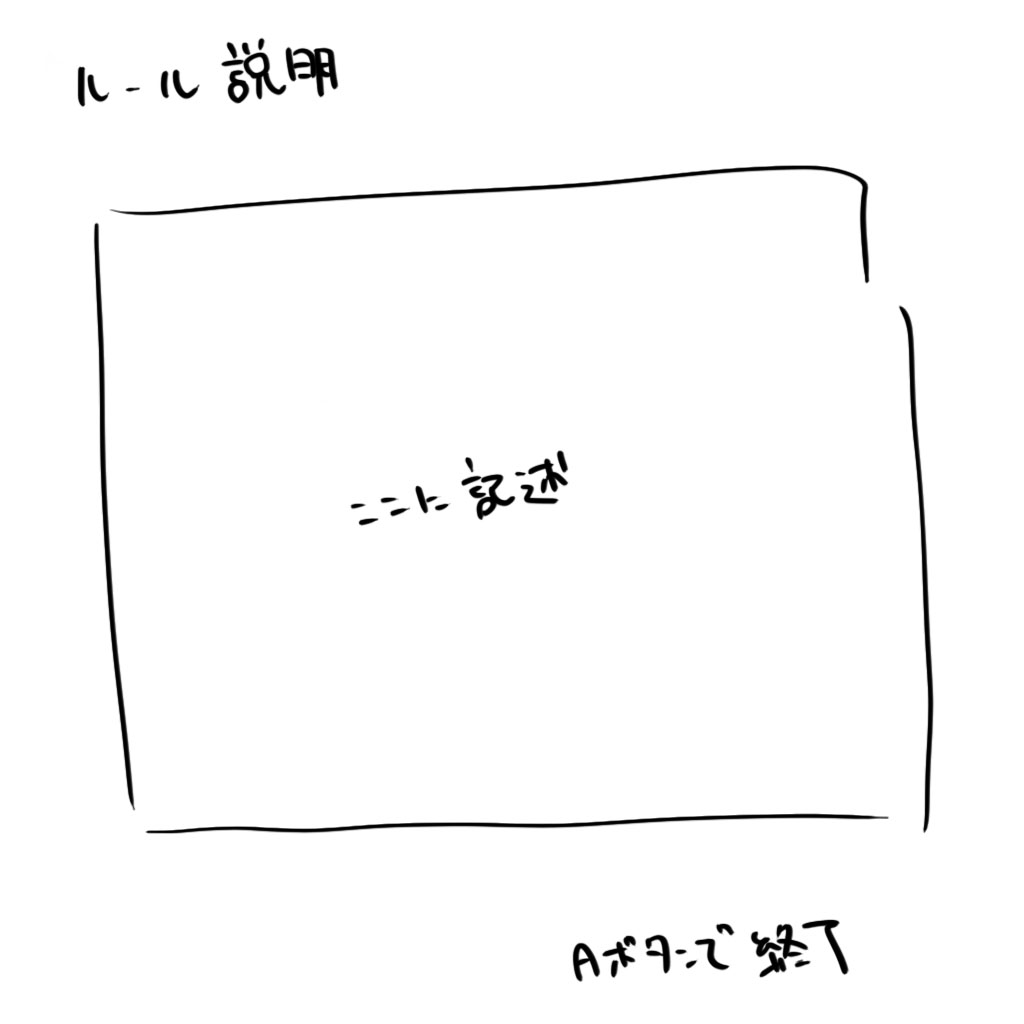 ルール説明
ここに記述
Aボタンで終了